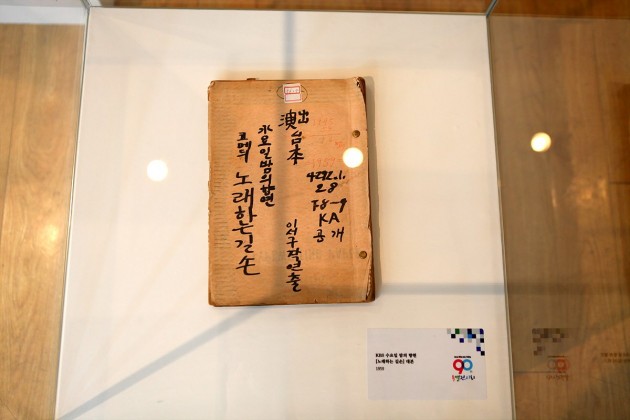 演出
台本
4292.1.
28
KA
공개
이서구작연출
水요일밤의향연
코메디 노래하는길손
KBS 수요일 밤의 향연
[노래하는 길손] 대본
90